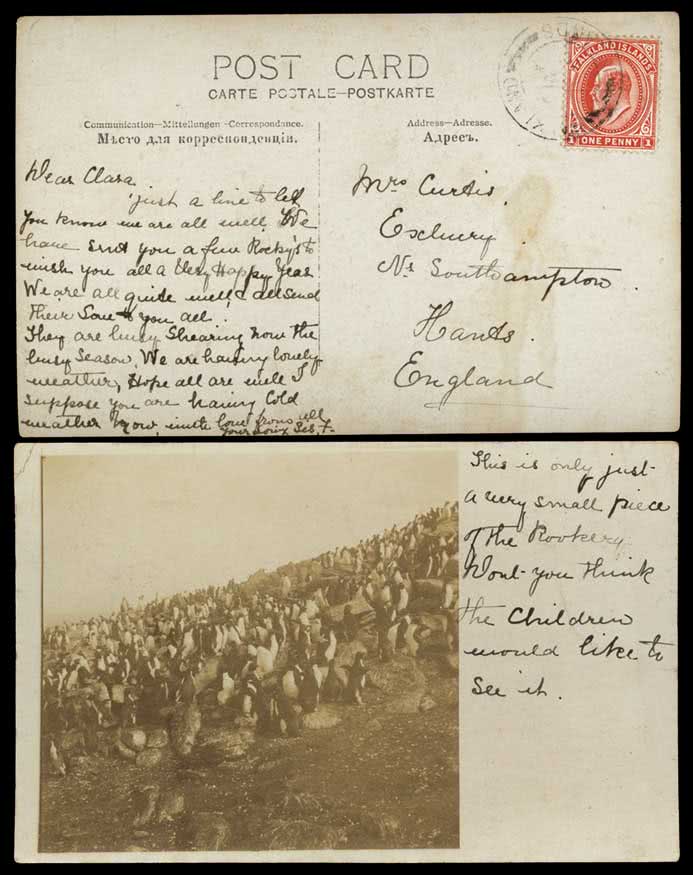 POST CARD
CARTE POSTALE—POSTKARTE
Communication—Mitteilungen—Correspondance.
Мѣсто для корреспонденціи.
Address—Adresse.
Адресъ.
FALKLAND ISLANDS
1 ONE PENNY 1
Dear Clara
just a line to let
you know we are all well. We
have sent you a few Rocky's to
wish you all a Very Happy Year
We are all quite well, & all send
their Love to you all.
They are busy Shearing now the
busy Season. We are having lovely
weather, Hope all are well I
suppose you are having Cold
weather now, with love from all
your Sis,
Mrs Curtis.
Exbury.
Nr Southampton.
Hants.
England
This is only just
a very small piece
of the Rookery
Wont you think
the Children
would like to
see it.